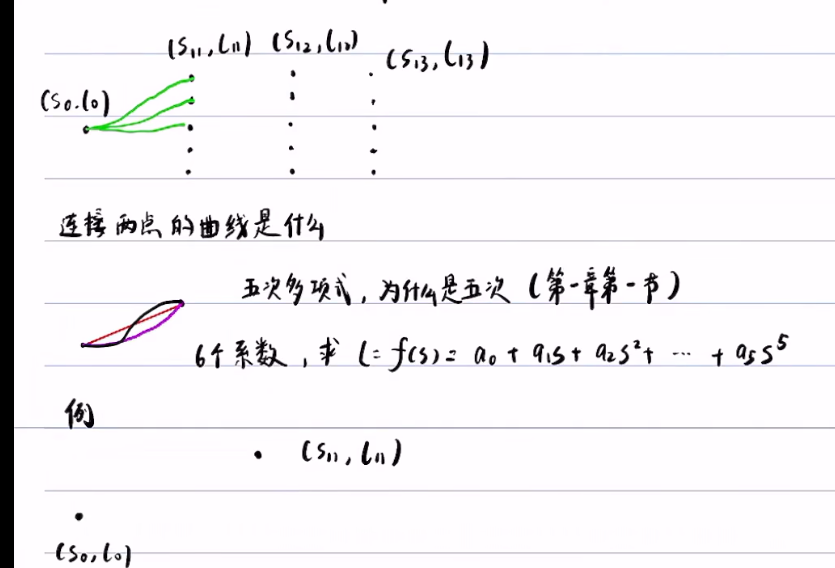 (S₁₁, l₁₁) (S₁₂, l₁₂) (S₁₃, l₁₃)
(S₀, l₀)
连接两点的曲线是什么
五次多项式，为什么是五次（第一章第一节）
6个系数，求 l = f(s) = a₀ + a₁s + a₂s² + … + a₅s⁵
例
(S₁₁, l₁₁)
(S₀, l₀)